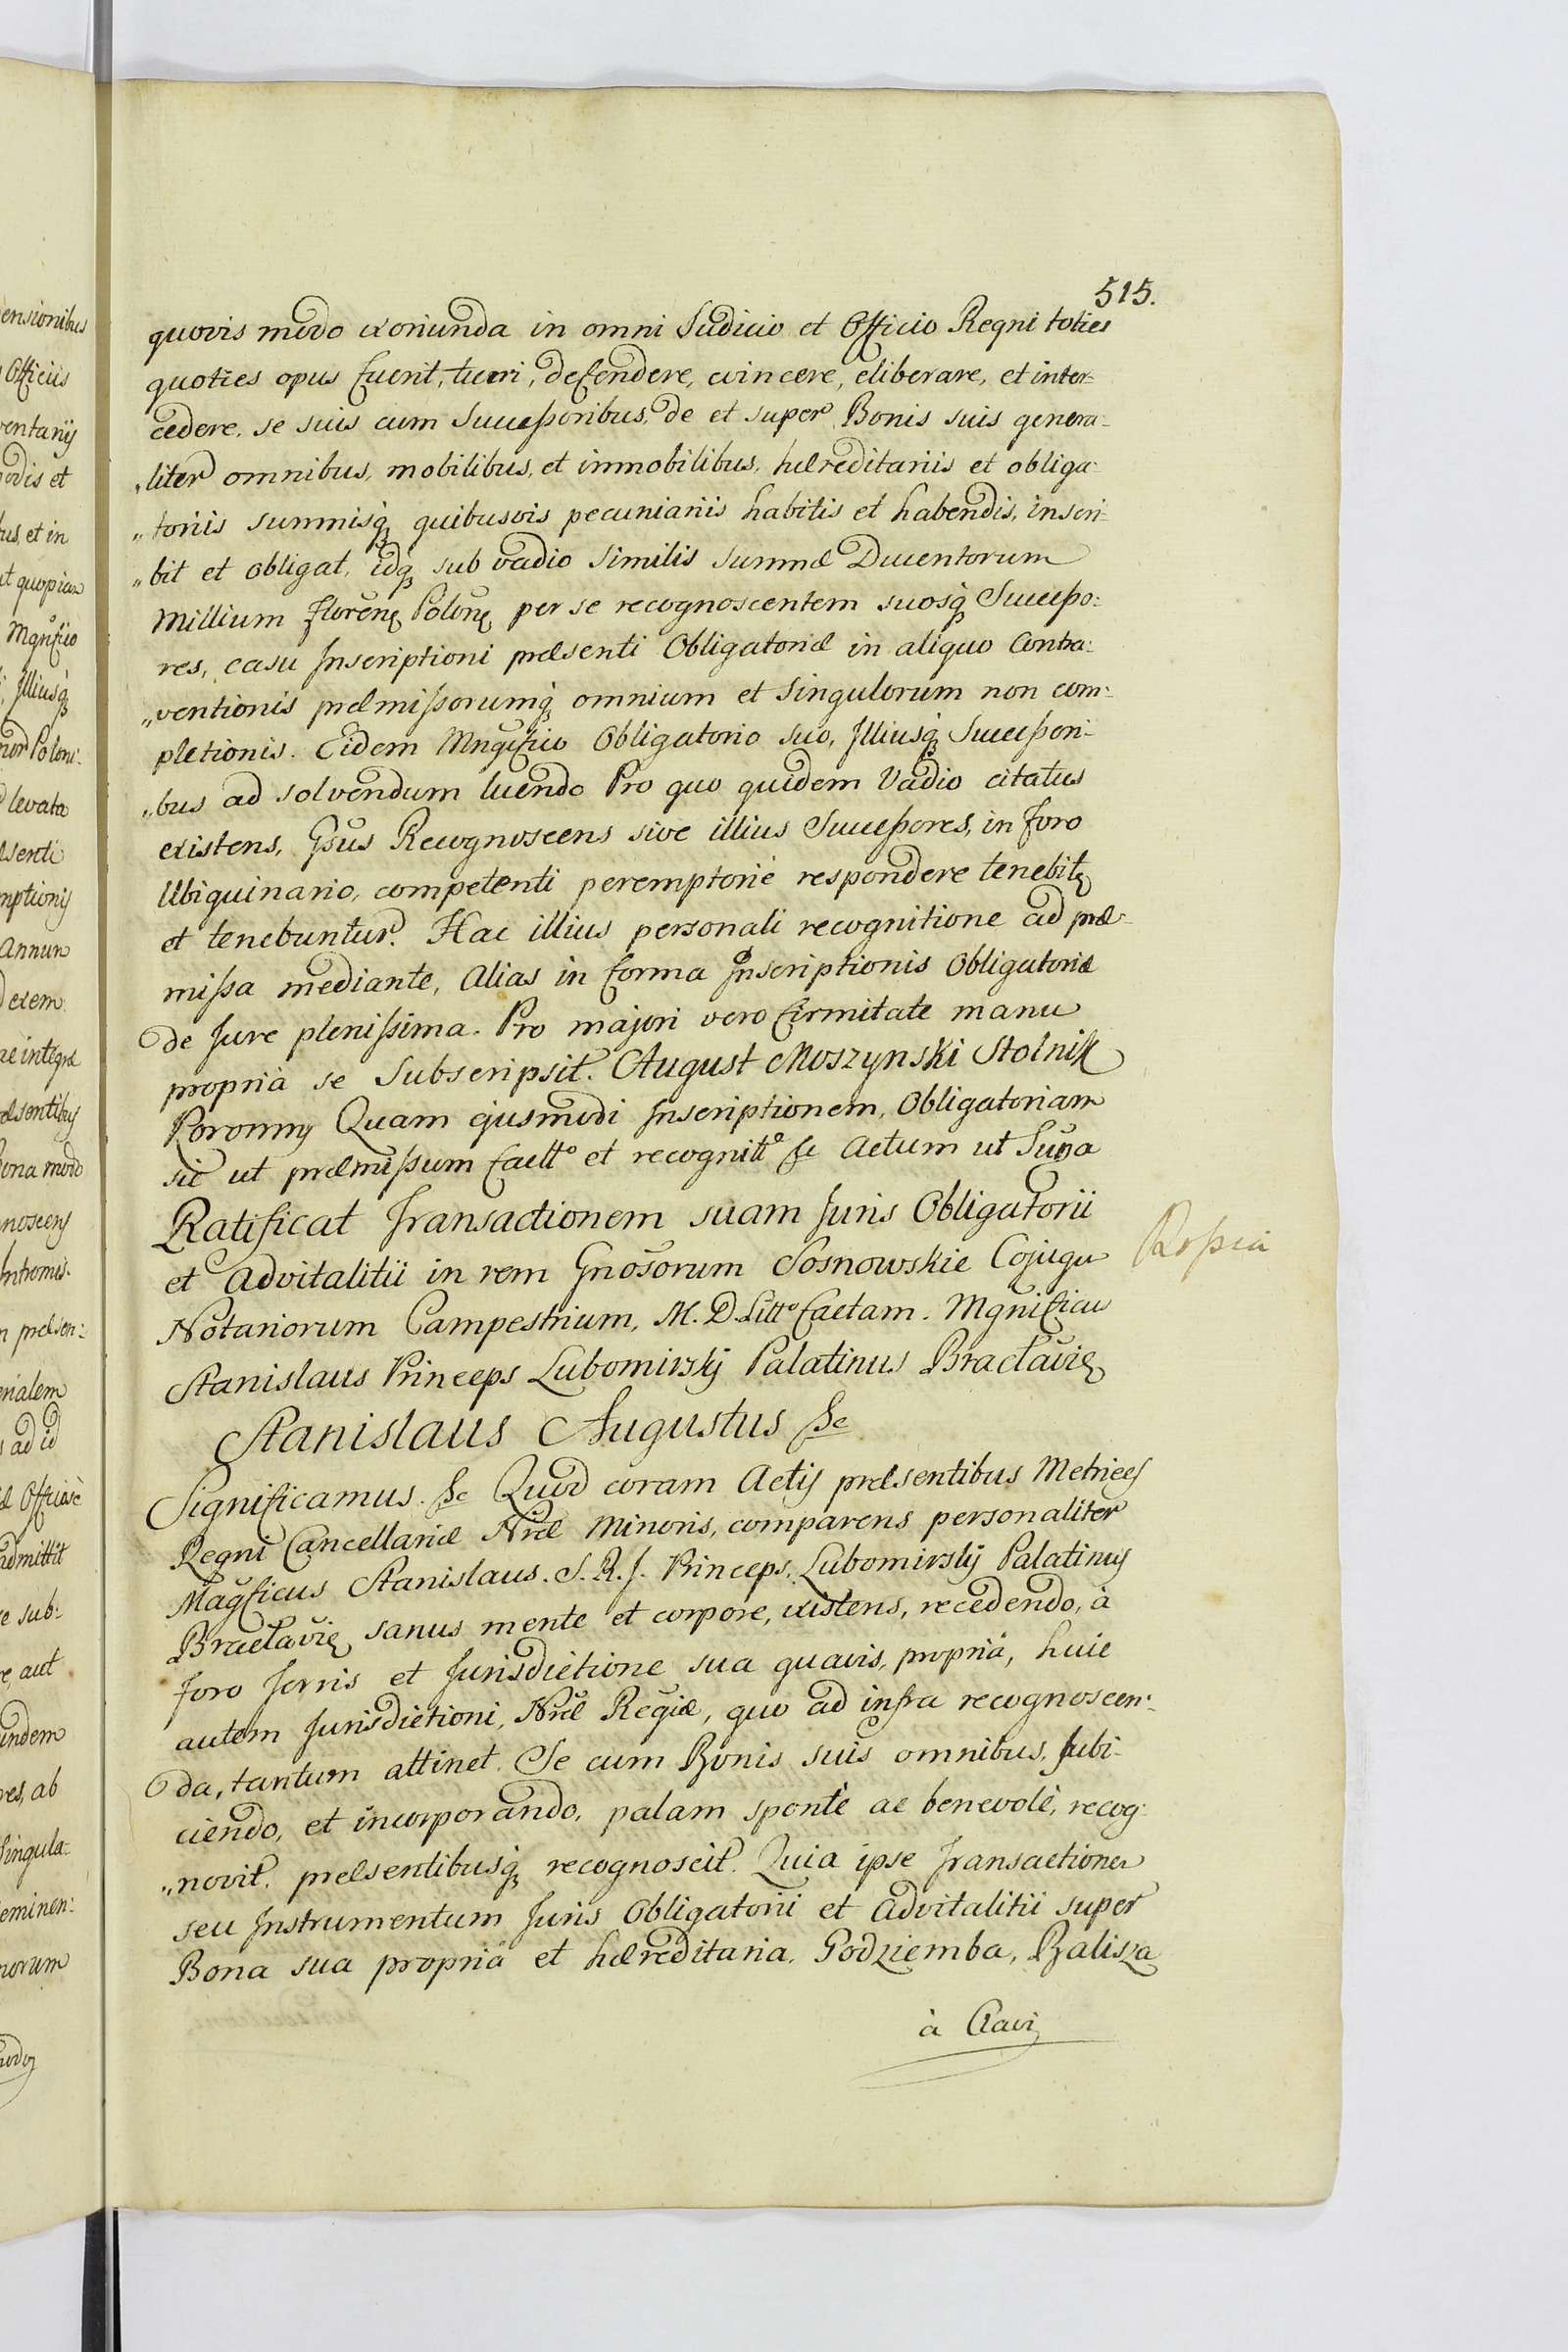 515.
quovis modo exoriunda in omni Judicio et Officio Regni toties
quoties opus fuerit, tueri, defendere, evincere, eliberare, et inter-
cedere, se suis cum Successoribus, de et super Bonis suis genera-
„liter omnibus, mobilibus, et immobilibus, hæreditariis et obliga-
„toriis summisq̨ quibusvis pecuniariis habitis et habendis, inscri-
„bit et obligat, idq̨ sub vadio Similis summæ Ducentorum
Millium florenę Polonę per se recognoscentem suosq̨ Successo:
res, casu Inscriptioni præsenti Obligatoriæ in aliquo Contra:
„ventionis præmissorumq̨ omnium et Singulorum non com-
pletionis. Eidem Mngcfico Obligatorio suo, Illiusq̨ Successori-
„bus ad solvendum luendo Pro quo quidem Vadio citatus
existens, Gsus Recognoscens sive illius Successores, in foro
Ubiquinario, competenti peremptorie respondere tenebitę
et tenebuntur. Hac illius personali recognitione ad præ-
missa mediante, Alias in forma Inscriptionis Obligatoriæ
de Jure plenissima. Pro majori vero firmitate manu
propria se Subscripsit. August Moszynski Stolnik
Koronny Quam ejusmodi Inscriptionem, Obligatoriam
sic ut præmissum factt° et recognitt° &c Actum ut Supa
Ratificat Transactionem suam Juris Obligatorii
et Advitalitii in rem Gnosorum Sosnowskie Cojugu
Notariorum Campestrium, M. D. Litt° factam. Mgnificus
Stanislaus Princeps Lubomirskÿ Palatinus Braclavię
Rossia
Stanislaus Augustus &c
Significamus. &c Quod coram Actis præsentibus Metrices
Regni Cancellariæ Nræ Minoris, comparens personaliter
Magficus Stanislaus. S. R. J. Princeps, Lubomirskÿ Palatinus
Braclavię sanus mente et corpore, existens, recedendo, à
foro Terris et Jurisdictione sua quavis, propriâ, huic
autem Jurisdictioni, Nræ Regiæ, quo ad infra recognoscen:
da, tantum attinet. Se cum Bonis suis omnibus, subi-
ciendo, et incorporando, palam sponte ac benevole, recog:
„novit, præsentibusq̨ recognoscit. Quia ipse Transactionem
seu Instrumentum Juris Obligatorii et Advitalitii super
Bona sua propria et hæreditaria, Godziemba, Balisza
à Clavi